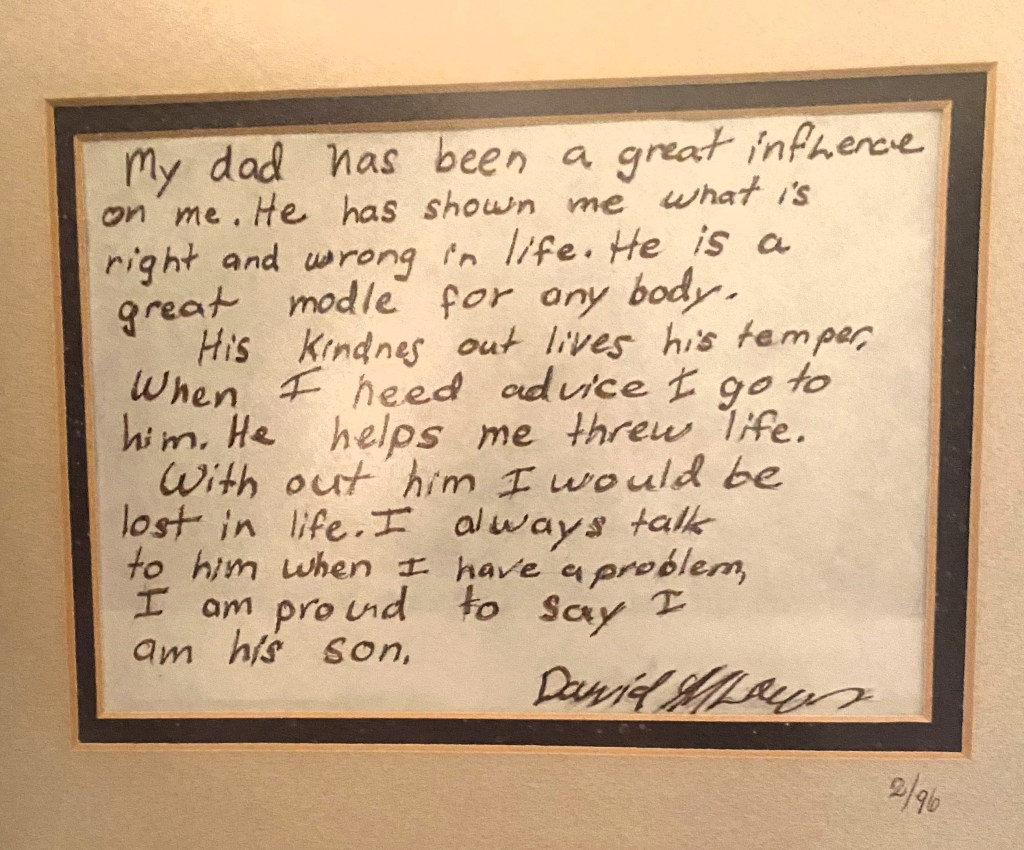 My dad has been a great infLuence
on me. He has shown me what is
right and wrong in life. He is a
great modle for any body.
His kindnes out lives his temper,
When I need advice I go to
him. He helps me threw life.
With out him I would be
lost in life. I always talk
to him when I have a problem,
I am proud to say I
am his son.
David
2/96